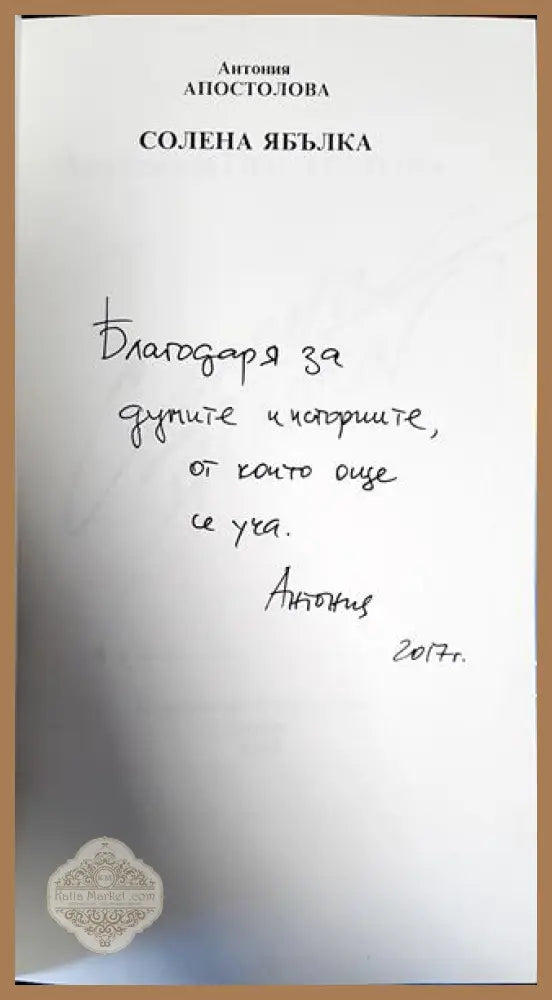 Антония
АПОСТОЛОВА
СОЛЕНА ЯБЪЛКА
Благодаря за
думите и историите,
от които още
се уча.
Антония
2017г.
KM
Katia Market .com